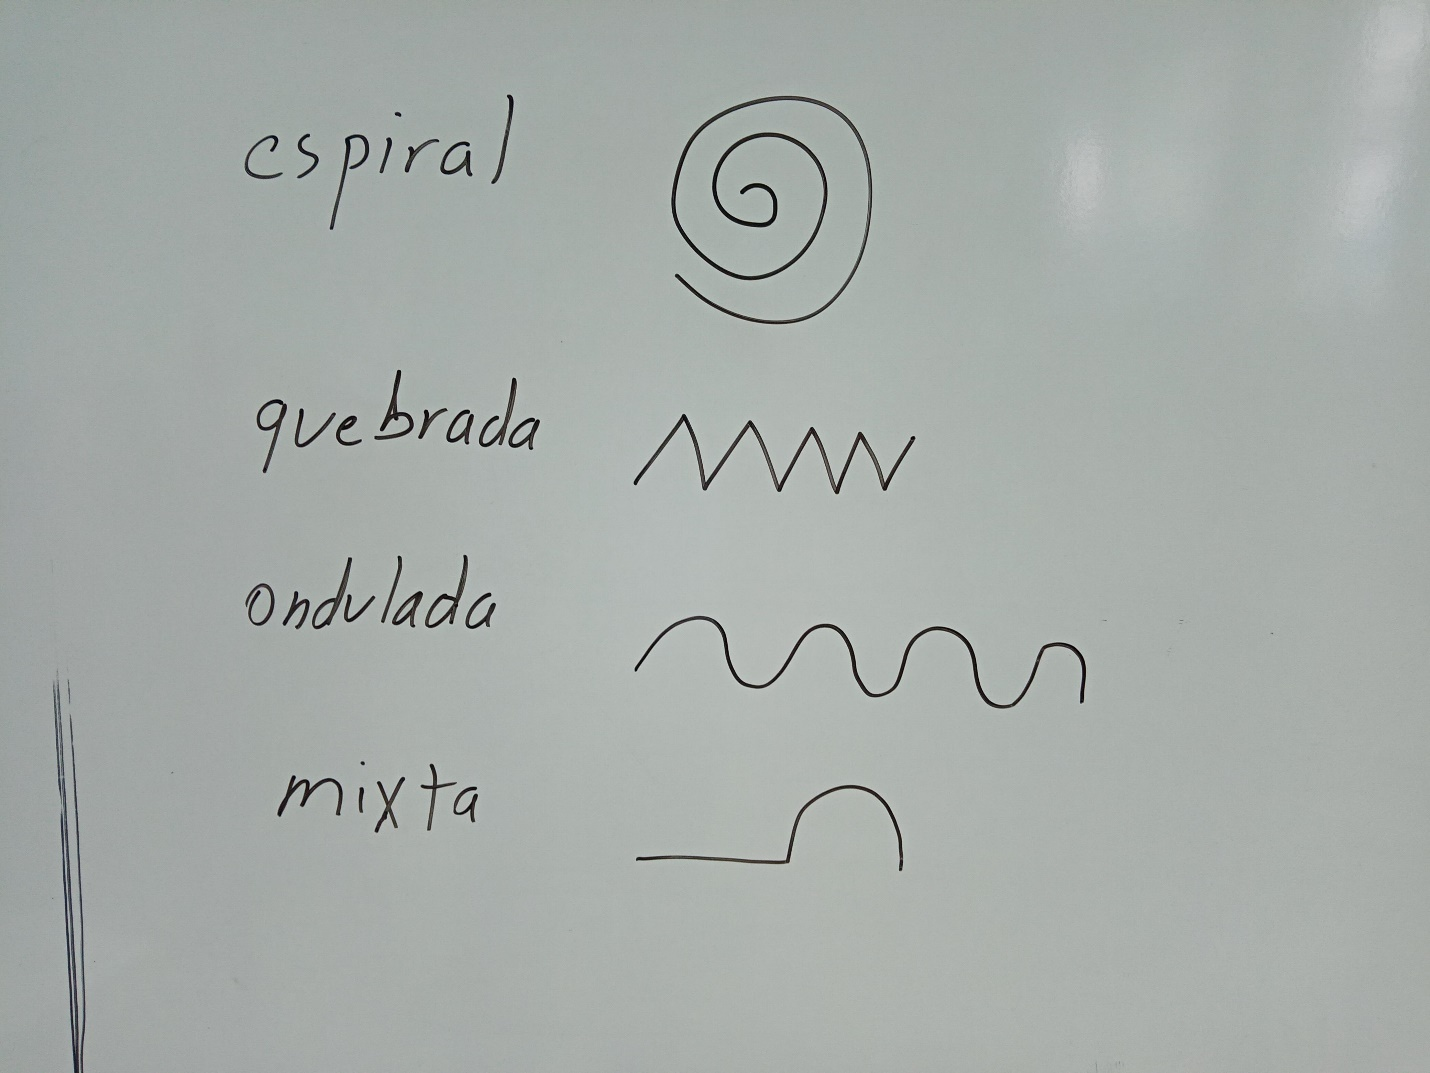 espiral
quebrada
ondulada
mixta